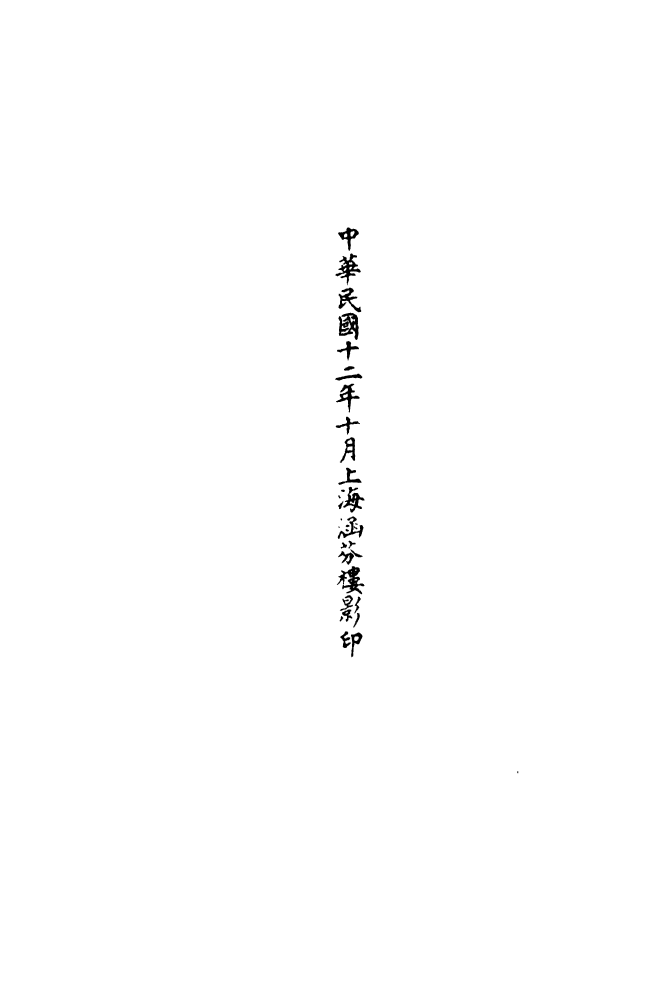 中華民國十二年十月上海涵芬樓影印